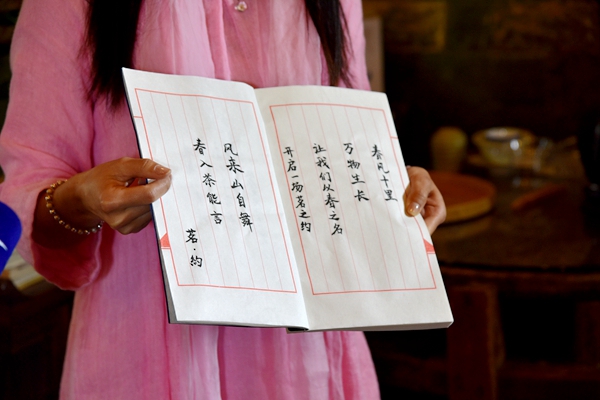 春风十里
万物生长
让我们以春之名
开启一场茗之约
风来山自舞
春入茶能言
茗·約